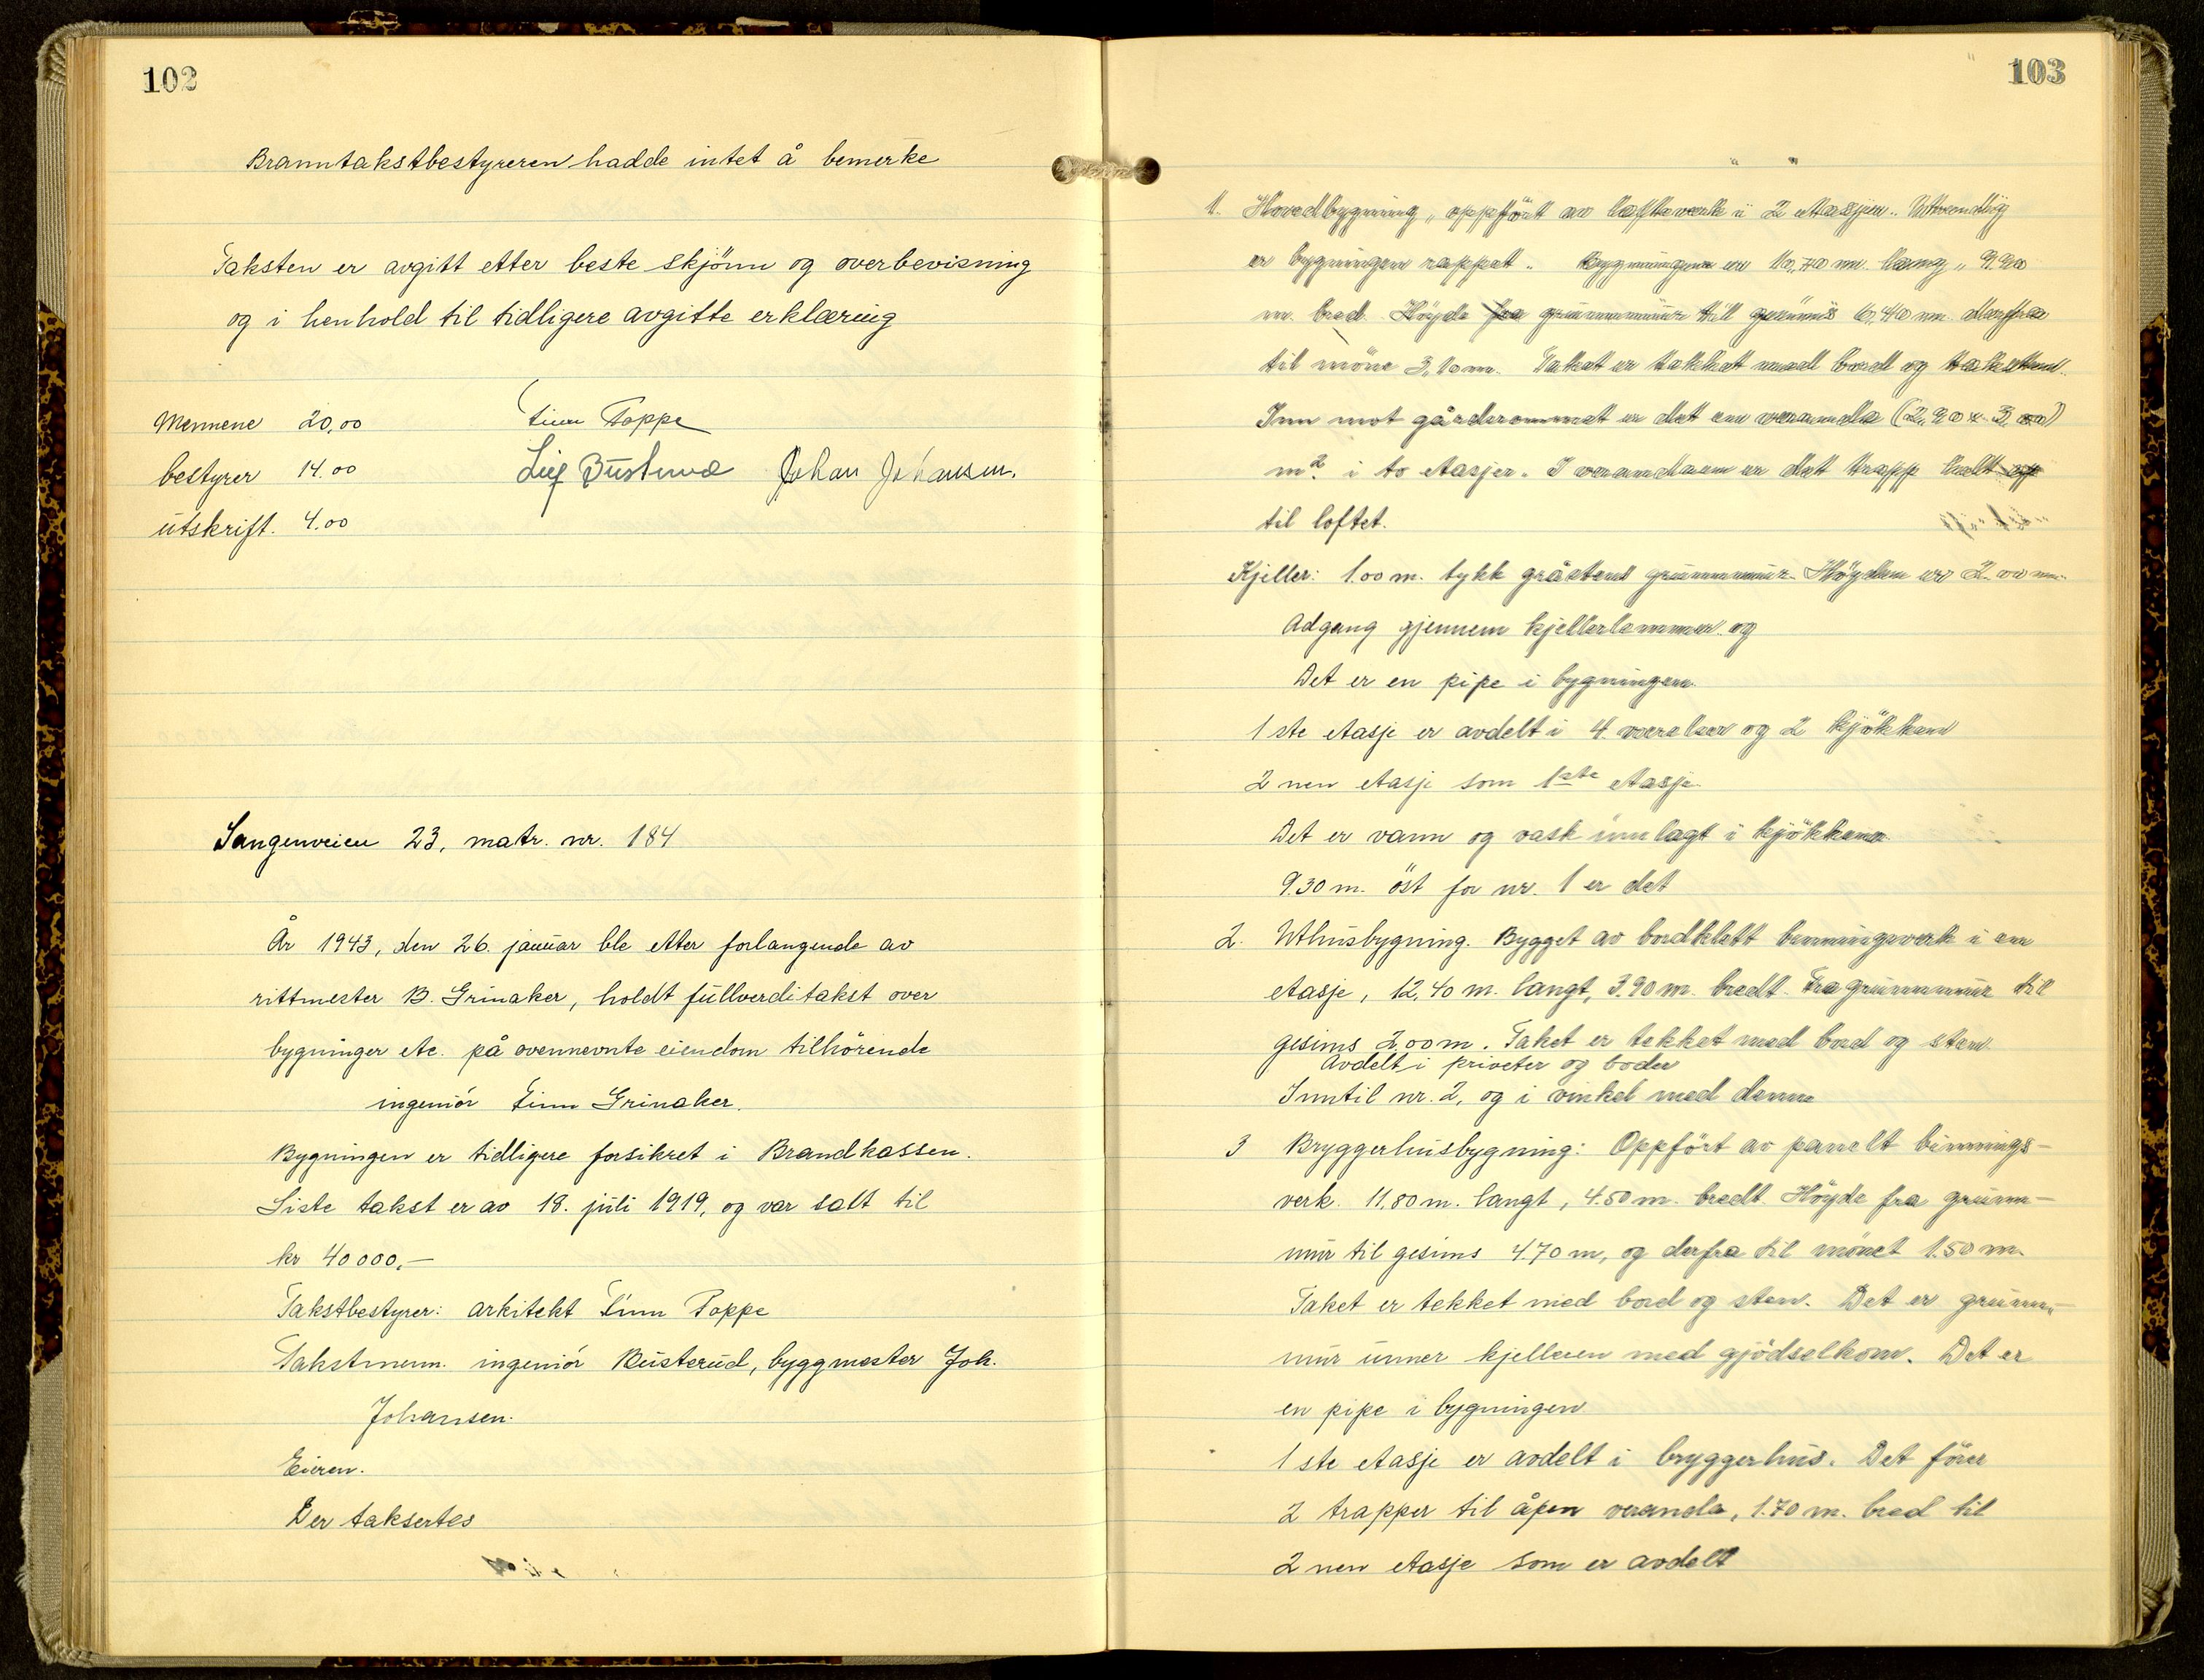 102
Branntakstbestyreren hadde intet å bemerke
Taksten er avgitt etter beste skjönn og overbevisning
og i henhold til tidligere avgitte erklæring
Mennene 20,00 Finn Poppe
bestyrer 14.00 Leif Busterud Johan Johansen.
utskrift. 4.00
Langenveien 23, matr. nr. 184
År 1943, den 26. januar ble etter forlangende av
rittmester B. Grinaker, holdt fullverditakst over
bygninger etc. på ovennevnte eiendom tilhörende
ingeniör Finn Grinaker.
Bygningen er tidligere forsikret i Brandkassen.
Siste takst er av 18. juli 1919, og var satt til
kr 40 000,-
Takstbestyrer: arkitekt Finn Poppe
Takstmenn. ingeniör Busterud, byggmester Joh.
Johansen.
Eieren.
Der taksertes
103
1. Hovedbygning, oppfört av lafteverk i 2 etasjer. Utvendig
er bygningen rappet. Bygningen er 10,70 m. lang, 9.90
m. bred. Höyde fra grunnmur till gesims 6,40 m. derfra
til möne 3,10 m. Taket er tekket med bord og taksten.
Inn mot gårdsrommet er det en veranda (2,90 x 3,00)
m² i to etasjer. I verandaen er det trapp helt op
til loftet.
Kjeller: 1.00 m. tykk gråstens grunnmur. Höyden er 2.00 m.
Adgang gjennem kjellerlemmer og
Det er en pipe i bygningen.
1 ste etasje er avdelt i 4 værelser og 2 kjökken
2 nen etasje som 1ste etasje.
Det er vann og vask innlagt i kjökkene
9.30 m. öst for nr. 1 er det
2. Uthusbygning. Bygget av bordklett binningsverk i en
etasje, 12,40 m. langt, 3.90 m. bredt. Fra grunnmur til
gesims 2,00 m. Taket er tekket med bord og sten.
Avdelt i priveter og boder
Inntil nr. 2, og i vinkel med denne
3 Bryggerhusbygning: Oppfört av panelt binnings-
verk. 11,80 m. langt, 4.50 m. bredt. Höyde fra grunn-
mur til gesims 4.70 m, og derfra til mönet 1.50 m.
Taket er tekket med bord og sten. Det er grunn-
mur unner kjelleren med gjödselkom. Det er
en pipe i bygningen
1 ste etasje er avdelt i bryggerhus. Det förer
2 trapper til åpen veranda, 1.70 m. bred til
2 nen etasje som er avdelt